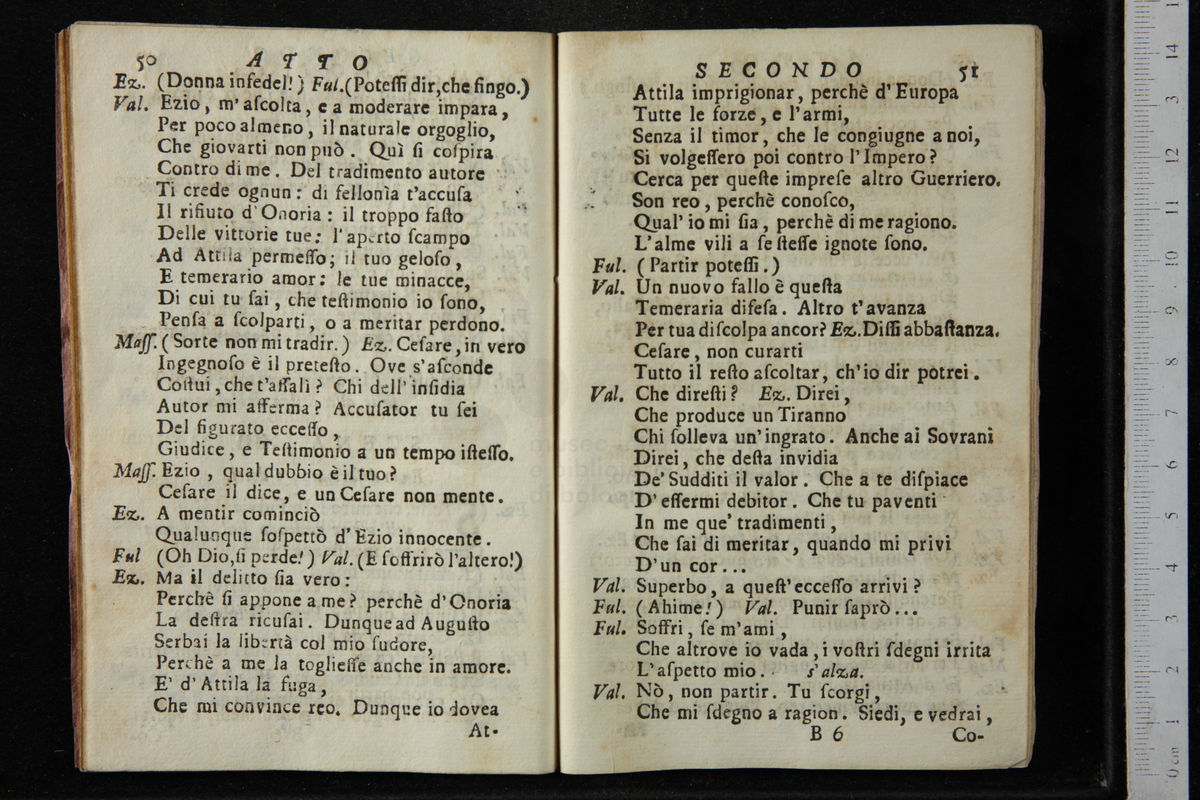 50 ATTO
Ez. (Donna infedel!) Ful.(Poteſſi dir,che fingo.)
Val. Ezio, m'aſcolta, e a moderare impara,
Per poco almeno, il naturale orgoglio,
Che giovarti non può. Quì ſi coſpira
Contro di me. Del tradimento autore
Ti crede ognun: di fellonìa t'accuſa
Il rifiuto d'Onoria: il troppo faſto
Delle vittorie tue: l'aperto ſcampo
Ad Attila permeſſo; il tuo geloſo,
E temerario amor: le tue minacce,
Di cui tu ſai, che teſtimonio io ſono,
Penſa a ſcolparti, o a meritar perdono.
Maſſ. (Sorte non mi tradir.) Ez. Ceſare, in vero
Ingegnoſo è il preteſto. Ove s'aſconde
Coſtui, che t'aſſalì? Chi dell'inſidia
Autor mi afferma? Accuſator tu ſei
Del figurato ecceſſo,
Giudice, e Teſtimonio a un tempo iſteſſo.
Maſſ. Ezio, qual dubbio è il tuo?
Ceſare il dice, e un Ceſare non mente.
Ez. A mentir cominciò
Qualunque ſoſpettò d'Ezio innocente.
Ful (Oh Dio,ſi perde!) Val. (E ſoffrirò l'altero!)
Ez. Ma il delitto ſia vero:
Perchè ſi appone a me? perchè d'Onoria
La deſtra ricuſai. Dunque ad Auguſto
Serbai la libertà col mio ſudore,
Perchè a me la toglieſſe anche in amore.
E' d'Attila la fuga,
Che mi convince reo. Dunque io dovea
At-
SECONDO 51
Attila imprigionar, perchè d'Europa
Tutte le forze, e l'armi,
Senza il timor, che le congiugne a noi,
Si volgeſſero poi contro l'Impero?
Cerca per queſte impreſe altro Guerriero.
Son reo, perchè conoſco,
Qual'io mi ſia, perchè di me ragiono.
L'alme vili a ſe ſteſſe ignote ſono.
Ful. (Partir poteſſi.)
Val. Un nuovo fallo è queſta
Temeraria difeſa. Altro t'avanza
Per tua diſcolpa ancor? Ez. Diſſi abbaſtanza.
Ceſare, non curarti
Tutto il reſto aſcoltar, ch'io dir potrei.
Val. Che direſti? Ez. Direi,
Che produce un Tiranno
Chi ſolleva un'ingrato. Anche ai Sovrani
Direi, che deſta invidia
De'Sudditi il valor. Che a te diſpiace
D'eſſermi debitor. Che tu paventi
In me que' tradimenti,
Che ſai di meritar, quando mi privi
D'un cor...
Val. Superbo, a queſt'ecceſſo arrivi?
Ful. (Ahime!) Val. Punir ſaprò...
Ful. Soffri, ſe m'ami,
Che altrove io vada, i voſtri ſdegni irrita
L'aſpetto mio. s'alza.
Val. Nò, non partir. Tu ſcorgi,
Che mi ſdegno a ragion. Siedi, e vedrai,
B 6 Co-